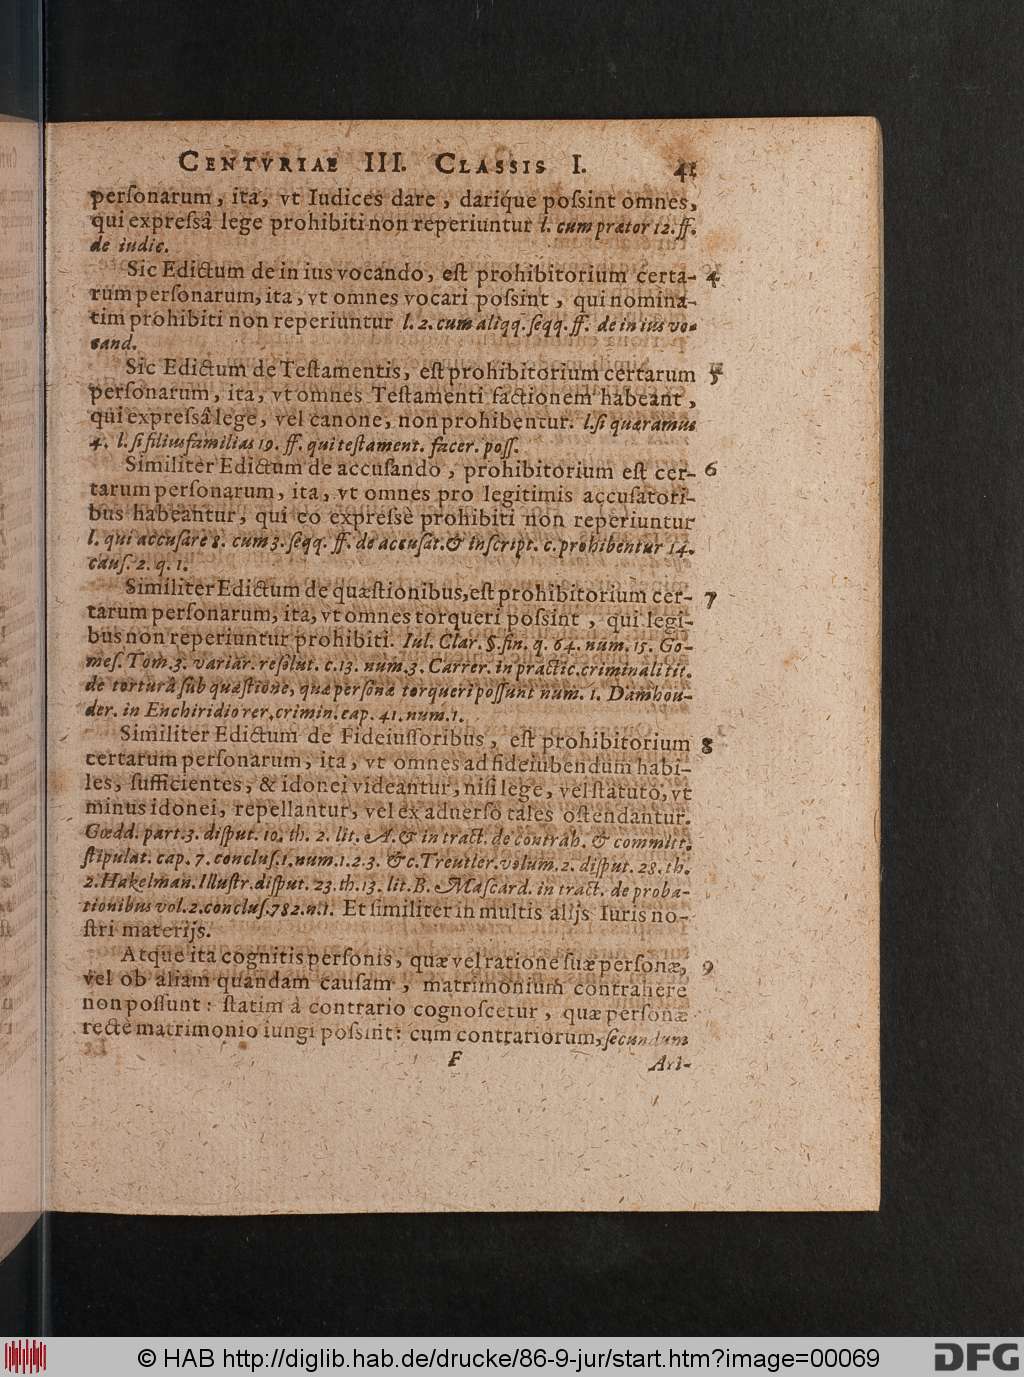 CENTVRIAE III. CLASSIS I. 41
perſonarum, ita, vt Iudices dare, darique poſsint omnes,
qui expreſsâ lege prohibiti non reperiuntur l. cum prætor 12. ff.
de iudic.
Sic Edictum de in ius vocando, eſt prohibitorium certa- 4
rum perſonarum, ita, vt omnes vocari poſsint, qui nomina-
tim prohibiti non reperiuntur l. 2. cum aliqq. ſeqq. ff. de in ius vo-
cand.
Sic Edictum de Teſtamentis, eſt prohibitorium certarum 5
perſonarum, ita, vt omnes Teſtamenti factionem habeant,
qui expreſsâ lege, vel canone, non prohibentur. l. ſi quæramus
4. l. ſi filiusfamilias 19. ff. qui teſtament. facer. poſſ.
Similiter Edictum de accuſando, prohibitorium eſt cer- 6
tarum perſonarum, ita, vt omnes pro legitimis accuſatori-
bus habeantur, qui eo expreſsè prohibiti non reperiuntur
l. qui accuſare 8. cum 3. ſeqq. ff. de accuſat. & inſcript. c. prohibentur 14.
cauſ. 2. q. 1.
Similiter Edictum de quæſtionibus, eſt prohibitorium cer- 7
tarum perſonarum, ita, vt omnes torqueri poſsint, qui legi-
bus non reperiuntur prohibiti. Iul. Clar. §. fin. q. 64. num. 15. Go-
meſ. Tom. 3. variar. reſolut. c. 13. num. 3. Carrer. in practic. criminali tit.
de torturâ ſub quæſtione, quæ perſonæ torqueri poſſunt num. 1. Damhou-
der. in Enchiridio rer. crimin. cap. 41. num. 1.
Similiter Edictum de Fideiuſſoribus, eſt prohibitorium 8
certarum perſonarum, ita, vt omnes ad fideiubendum habi-
les, ſufficientes, & idonei videantur, niſi lege, vel ſtatuto, vt
minus idonei, repellantur, vel ex aduerſo tales oſtendantur.
Gœdd. part. 3. diſput. 10. th. 2. lit. A. & in tract. de contrah. & committ.
ſtipulat. cap. 7. concluſ. 1. num. 1. 2. 3. &c. Treutler. volum. 2. diſput. 28. th.
2. Hakelman. Illuſtr. diſput. 23. th. 13. lit. B. Maſcard. in tract. de proba-
tionibus vol. 2. concluſ. 782. n. 1. Et ſimiliter in multis alijs Iuris no-
ſtri materijs.
Atque ita cognitis perſonis, quæ vel ratione ſuæ perſonæ, 9
vel ob aliam quandam cauſam, matrimonium contrahere
non poſſunt: ſtatim à contrario cognoſcetur, quæ perſonæ
rectè matrimonio iungi poſsint: cum contrariorum, ſecundum
F Ari-
© HAB http://diglib.hab.de/drucke/86-9-jur/start.htm?image=00069
DFG